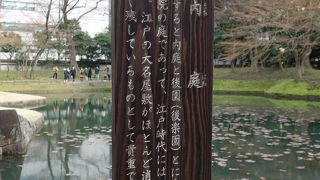 内庭
すると内庭と後園(後楽園)とに
院の庭であって、江戸時代には
江戸の大名屋敷がほとんど消
残しているものとして貴重で